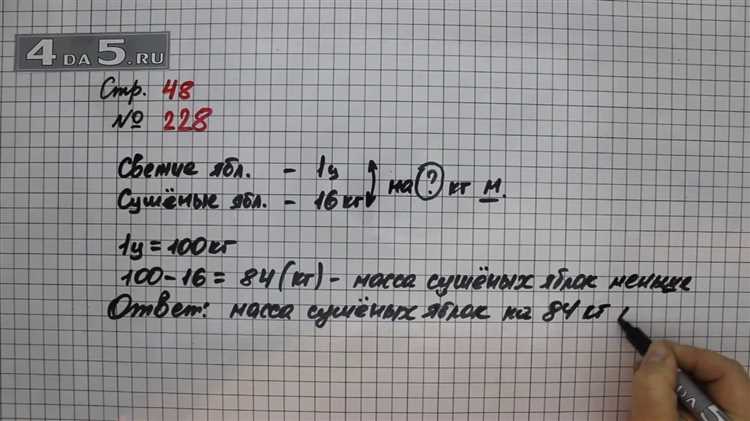 4 DA 5.RU
Стр. 48
№ 228
Свежие ябл. - 1ц
Сушёные ябл. - 16 кг
на ? кг м.
1ц = 100кг
100-16 = 84 (кг) - масса сушёных яблок меньше
Ответ: масса сушёных яблок на 84 кг
DA 5